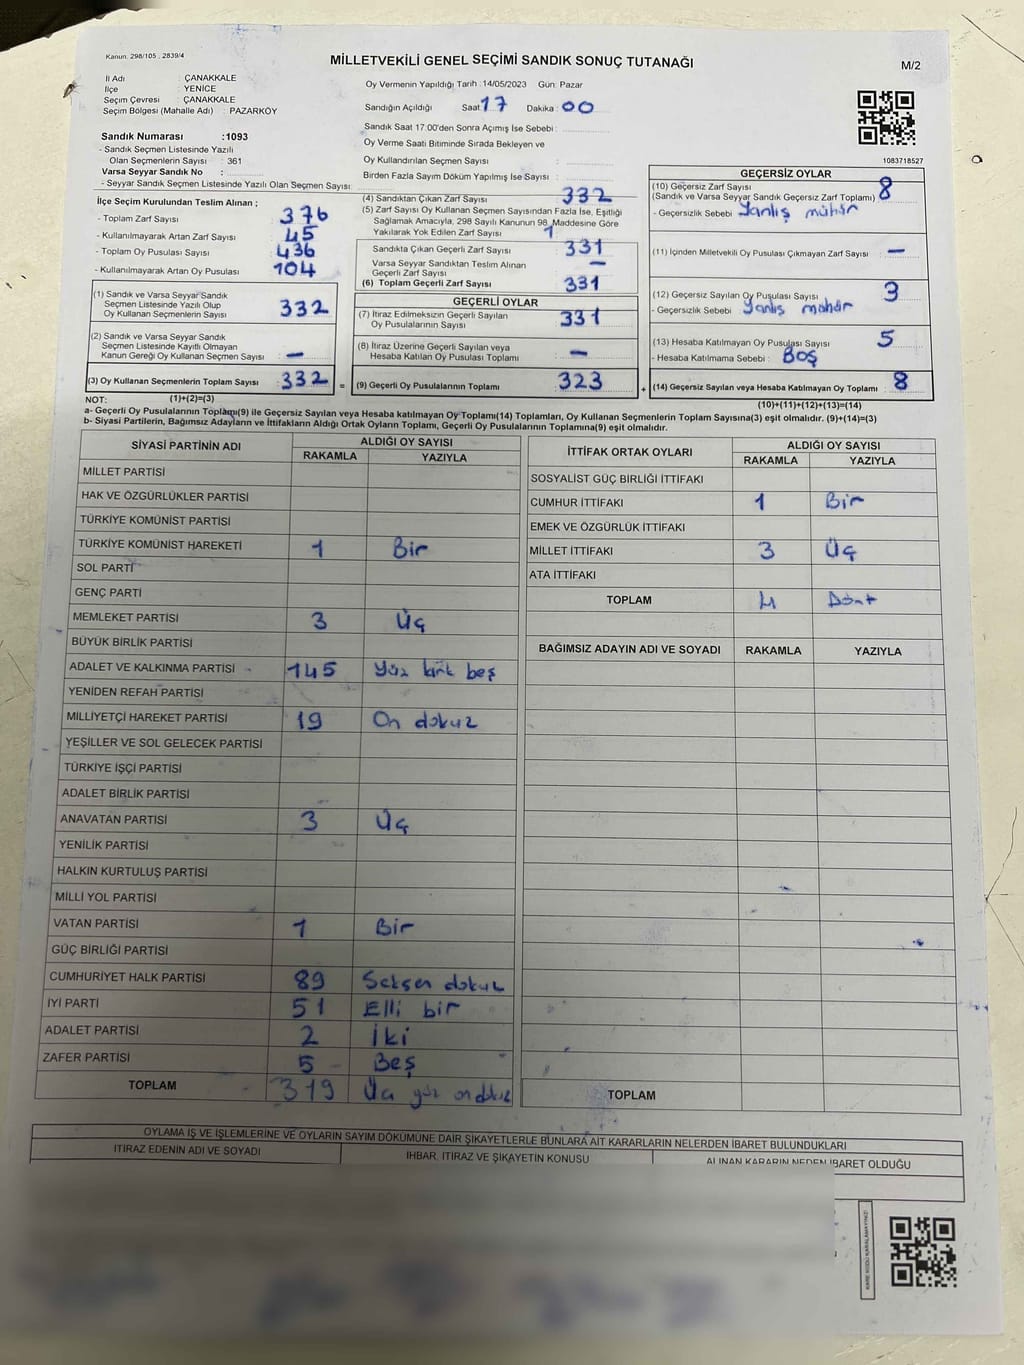 Kanun. 298/105 . 2839/4
MİLLETVEKİLİ GENEL SEÇİMİ SANDIK SONUÇ TUTANAĞI
M/2
İl Adı : ÇANAKKALE
İlçe : YENİCE
Seçim Çevresi : ÇANAKKALE
Seçim Bölgesi (Mahalle Adı) : PAZARKÖY
Oy Vermenin Yapıldığı Tarih : 14/05/2023 Gün: Pazar
Sandığın Açıldığı Saat 17 Dakika : 00
Sandık Saat 17.00'den Sonra Açımış İse Sebebi :
Oy Verme Saati Bitiminde Sırada Bekleyen ve
Oy Kullandırılan Seçmen Sayısı :
Birden Fazla Sayım Döküm Yapılmış İse Sayısı :
1083718527
Sandık Numarası :1093
- Sandık Seçmen Listesinde Yazılı
Olan Seçmenlerin Sayısı : 361
Varsa Seyyar Sandık No :
- Seyyar Sandık Seçmen Listesinde Yazılı Olan Seçmen Sayısı :
İlçe Seçim Kurulundan Teslim Alınan ;
- Toplam Zarf Sayısı : 376
- Kullanılmayarak Artan Zarf Sayısı : 45
- Toplam Oy Pusulası Sayısı : 436
- Kullanılmayarak Artan Oy Pusulası : 104
(1) Sandık ve Varsa Seyyar Sandık
Seçmen Listesinde Yazılı Olup
Oy Kullanan Seçmenlerin Sayısı : 332
(2) Sandık ve Varsa Seyyar Sandık
Seçmen Listesinde Kayıtlı Olmayan
Kanun Gereği Oy Kullanan Seçmen Sayısı : —
(3) Oy Kullanan Seçmenlerin Toplam Sayısı : 332 =
(4) Sandıktan Çıkan Zarf Sayısı : 332
(5) Zarf Sayısı Oy Kullanan Seçmen Sayısından Fazla İse, Eşitliği
Sağlamak Amacıyla, 298 Sayılı Kanunun 98. Maddesine Göre
Yakılarak Yok Edilen Zarf Sayısı : 1
Sandıkta Çıkan Geçerli Zarf Sayısı : 331
Varsa Seyyar Sandıktan Teslim Alınan
Geçerli Zarf Sayısı : —
(6) Toplam Geçerli Zarf Sayısı : 331
GEÇERLİ OYLAR
(7) İtiraz Edilmeksizin Geçerli Sayılan
Oy Pusulalarının Sayısı : 331
(8) İtiraz Üzerine Geçerli Sayılan veya
Hesaba Katılan Oy Pusulası Toplamı : —
(9) Geçerli Oy Pusulalarının Toplamı : 323 +
GEÇERSİZ OYLAR
(10) Geçersiz Zarf Sayısı : 8
(Sandık ve Varsa Seyyar Sandık Geçersiz Zarf Toplamı)
- Geçersizlik Sebebi : Yanlış mühür
(11) İçinden Milletvekili Oy Pusulası Çıkmayan Zarf Sayısı : —
(12) Geçersiz Sayılan Oy Pusulası Sayısı : 3
- Geçersizlik Sebebi : Yanlış mühür
(13) Hesaba Katılmayan Oy Pusulası Sayısı : 5
- Hesaba Katılmama Sebebi : Boş
(14) Geçersiz Sayılan veya Hesaba Katılmayan Oy Toplamı : 8
NOT: (1)+(2)=(3)
(10)+(11)+(12)+(13)=(14)
a- Geçerli Oy Pusulalarının Toplamı(9) ile Geçersiz Sayılan veya Hesaba katılmayan Oy Toplamı(14) Toplamları, Oy Kullanan Seçmenlerin Toplam Sayısına(3) eşit olmalıdır. (9)+(14)=(3)
b- Siyasi Partilerin, Bağımsız Adayların ve İttifakların Aldığı Ortak Oyların Toplamı, Geçerli Oy Pusulalarının Toplamına(9) eşit olmalıdır.
SİYASİ PARTİNİN ADI ALDIĞI OY SAYISI
RAKAMLA YAZIYLA
MİLLET PARTİSİ
HAK VE ÖZGÜRLÜKLER PARTİSİ
TÜRKİYE KOMÜNİST PARTİSİ
TÜRKİYE KOMÜNİST HAREKETİ 1 Bir
SOL PARTİ
GENÇ PARTİ
MEMLEKET PARTİSİ 3 Üç
BÜYÜK BİRLİK PARTİSİ
ADALET VE KALKINMA PARTİSİ 145 Yüz kırk beş
YENİDEN REFAH PARTİSİ
MİLLİYETÇİ HAREKET PARTİSİ 19 On dokuz
YEŞİLLER VE SOL GELECEK PARTİSİ
TÜRKİYE İŞÇİ PARTİSİ
ADALET BİRLİK PARTİSİ
ANAVATAN PARTİSİ 3 Üç
YENİLİK PARTİSİ
HALKIN KURTULUŞ PARTİSİ
MİLLİ YOL PARTİSİ
VATAN PARTİSİ 1 Bir
GÜÇ BİRLİĞİ PARTİSİ
CUMHURİYET HALK PARTİSİ 89 Seksen dokuz
İYİ PARTİ 51 Elli bir
ADALET PARTİSİ 2 İki
ZAFER PARTİSİ 5 Beş
TOPLAM 319 Üç yüz on dokuz
İTTİFAK ORTAK OYLARI ALDIĞI OY SAYISI
RAKAMLA YAZIYLA
SOSYALİST GÜÇ BİRLİĞİ İTTİFAKI
CUMHUR İTTİFAKI 1 Bir
EMEK VE ÖZGÜRLÜK İTTİFAKI
MİLLET İTTİFAKI 3 Üç
ATA İTTİFAKI
TOPLAM 4 Dört
BAĞIMSIZ ADAYIN ADI VE SOYADI RAKAMLA YAZIYLA
TOPLAM
OYLAMA İŞ VE İŞLEMLERİNE VE OYLARIN SAYIM DÖKÜMÜNE DAİR ŞİKAYETLERLE BUNLARA AİT KARARLARIN NELERDEN İBARET BULUNDUKLARI
İTİRAZ EDENİN ADI VE SOYADI İHBAR, İTİRAZ VE ŞİKAYETİN KONUSU ALINAN KARARIN NEDEN İBARET OLDUĞU
KARE KODU KARALAMAYINIZ!